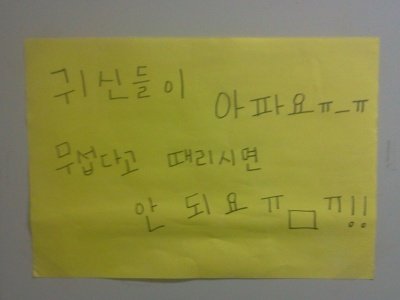 귀신들이
아파요ㅠ_ㅠ
무섭다고 때리시면
안 되요 ㅠㅁㅠ!!